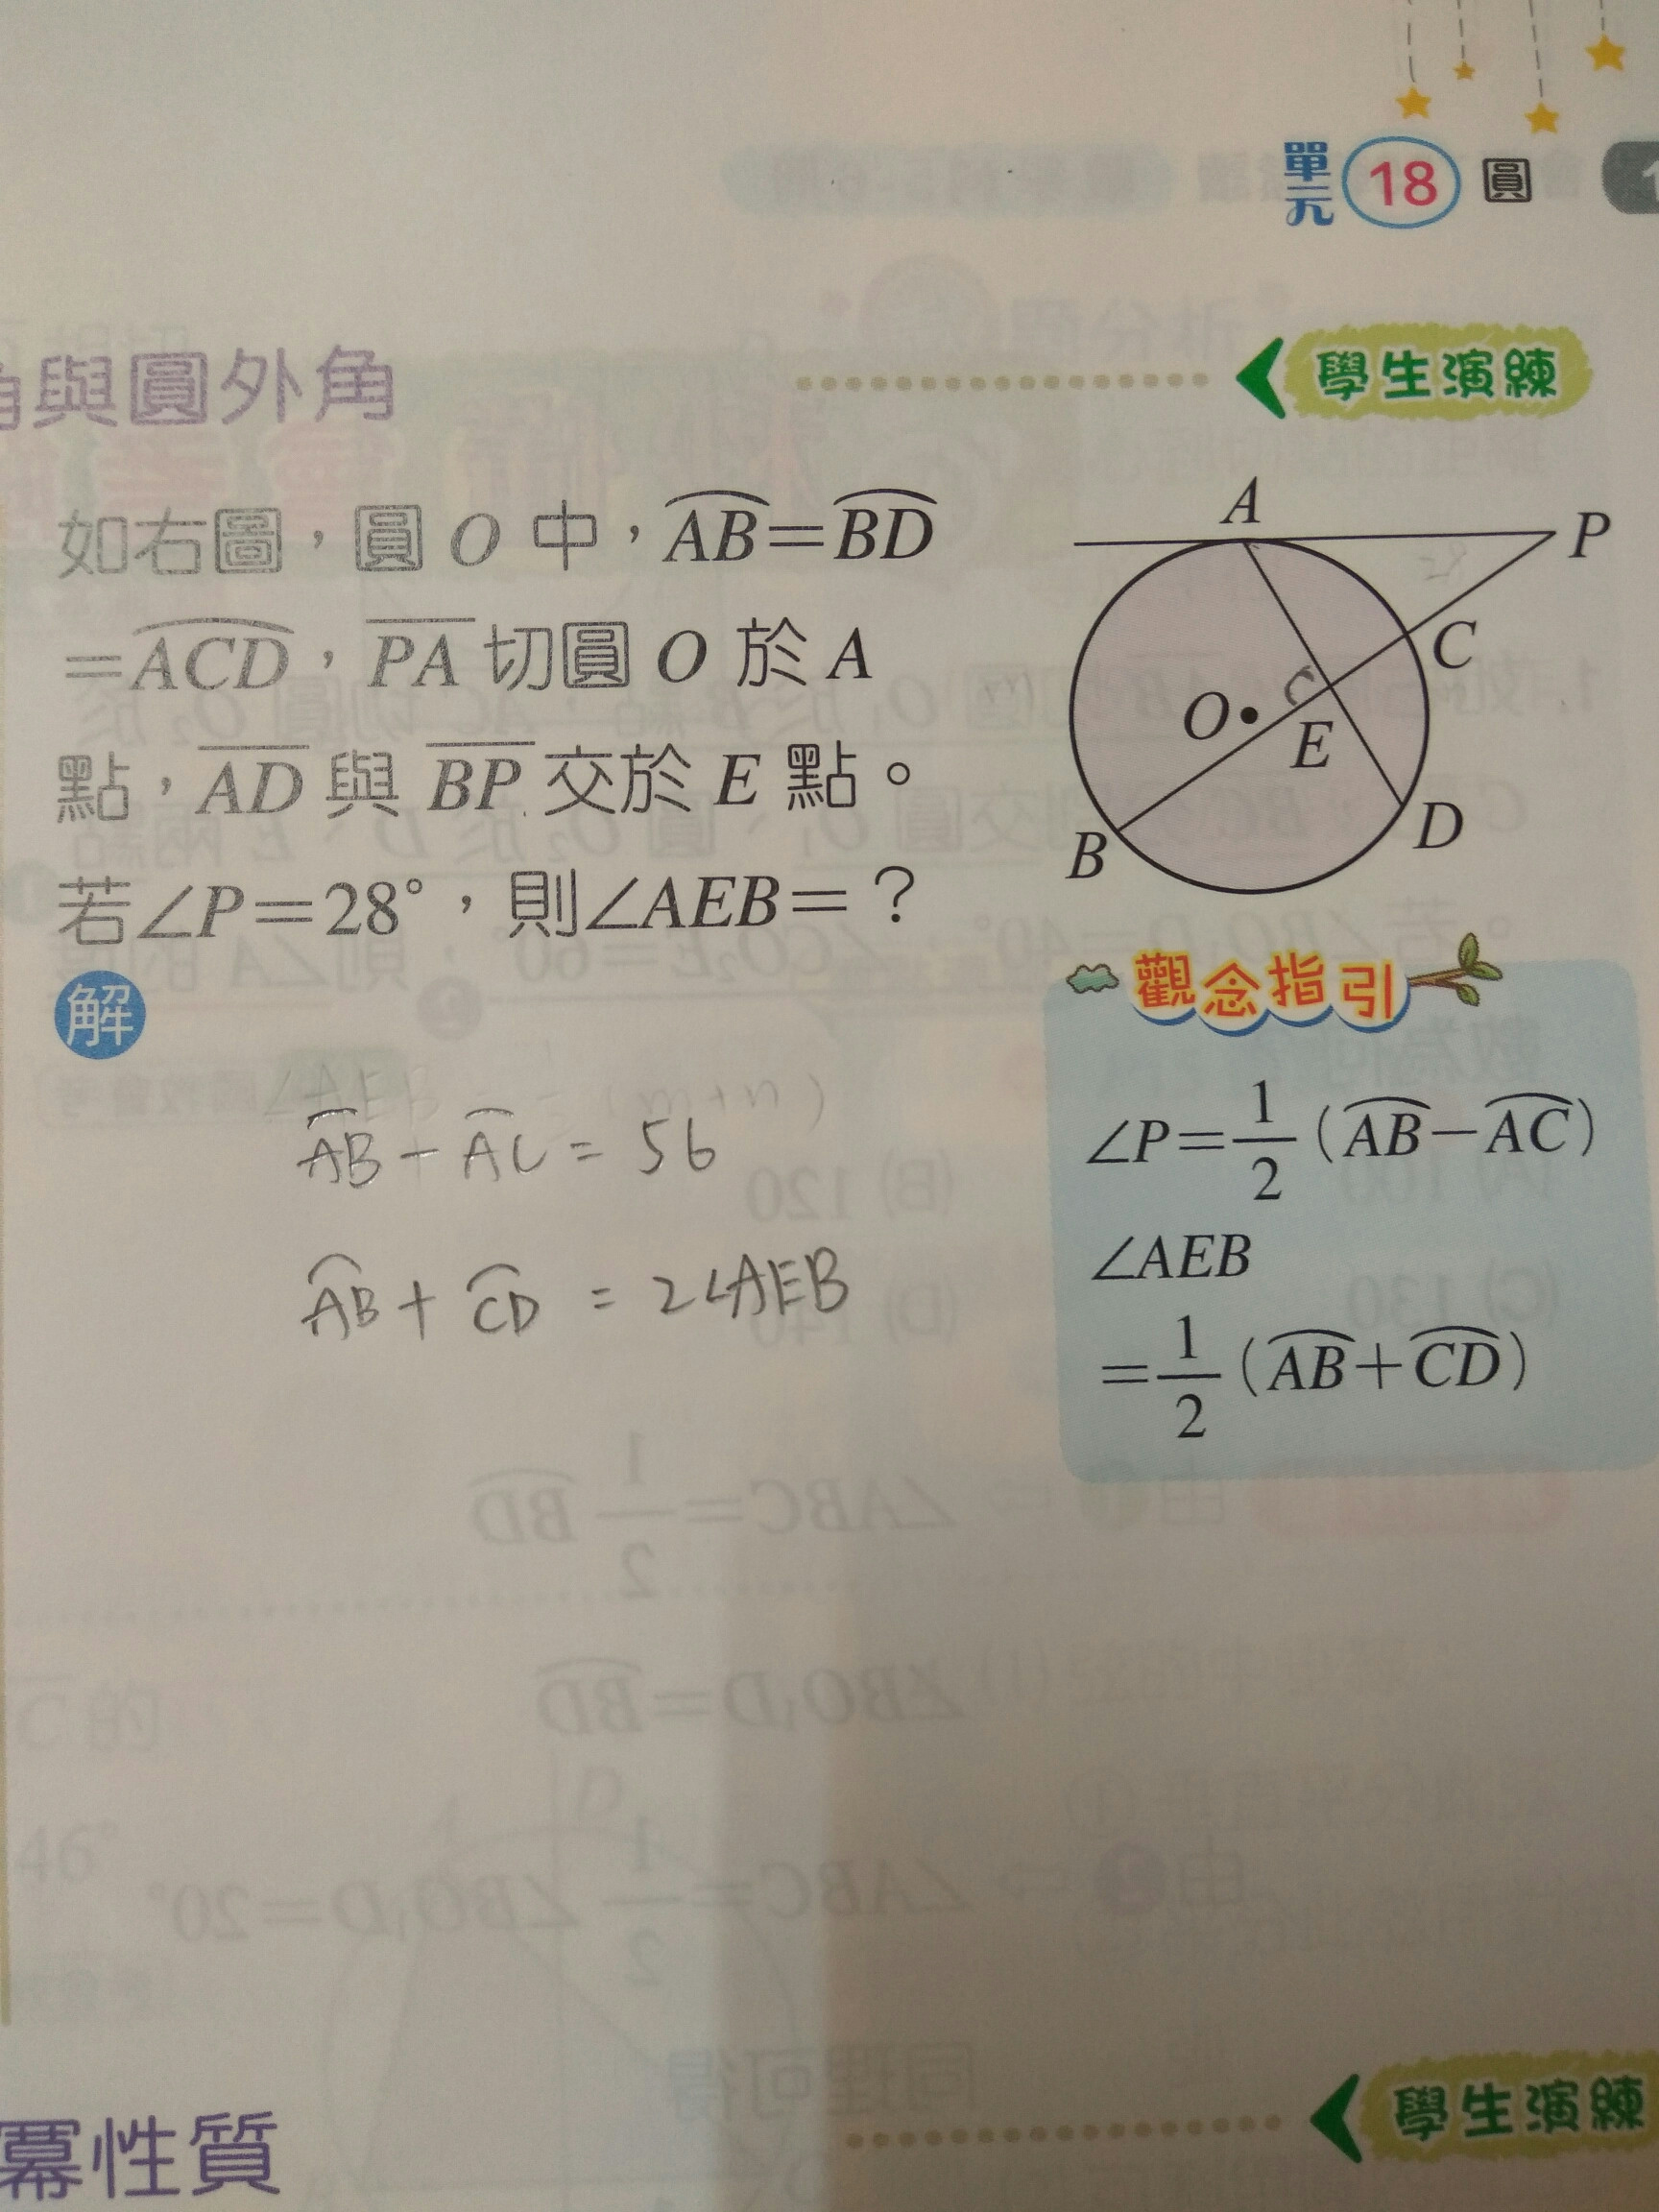 單元 18 圓
角與圓外角
學生演練
如右圖，圓 O 中，AB=BD
=ACD，PA 切圓 O 於 A
點，AD 與 BP 交於 E 點。
若∠P=28°，則∠AEB=？
A
P
C
O
E
B
D
解
AB-AC = 56
AB+CD = 2∠AEB
觀念指引
∠P=1/2(AB-AC)
∠AEB
=1/2(AB+CD)
C的
46°
冪性質
學生演練